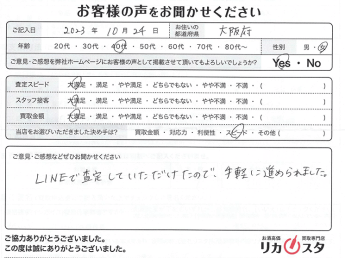 お客様の声をお聞かせください
ご記入日 2023年10月24日 お住いの都道府県 大阪府
年齢 20代・30代・40代・50代・60代・70代・80代〜 性別 男・女
ご意見・ご感想を弊社ホームページにお客様の声として掲載させて頂いてもよろしいでしょうか? Yes・No
査定スピード 大満足・満足・やや満足・どちらでもない・やや不満・不満・( )
スタッフ接客 大満足・満足・やや満足・どちらでもない・やや不満・不満・( )
買取金額 大満足・満足・やや満足・どちらでもない・やや不満・不満・( )
当店をお選びいただきました決め手は? 買取金額・対応力・利便性・スピード・その他( )
ご意見・ご感想などぜひお聞かせください
LINEで査定していただけたので、手軽に進められました。
ご協力ありがとうございました。
この度は誠にありがとうございました。
お酒高価買取専門店
リカスタ